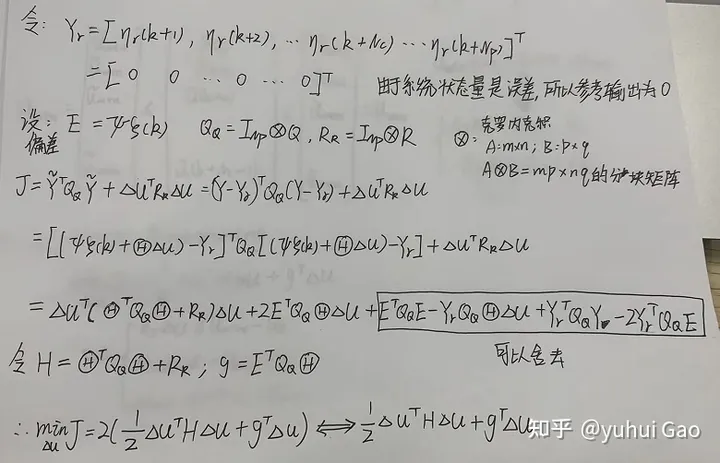 令: Yr = [ηr(k+1), ηr(k+2), … ηr(k+Nc) … ηr(k+Np)]ᵀ
= [0 0 … 0 … 0]ᵀ
由于系统状态量是误差,所以参考输出为0
设: E = Ψξ(k) Q_Q = I_Np⊗Q, R_R = I_Np⊗R
偏差
⊗: 克罗内克积
A=m×n; B=p×q
A⊗B=mp×nq的分块矩阵
J = ỸᵀQ_QỸ + ΔUᵀR_RΔU = (Y-Yr)ᵀQ_Q(Y-Yr) + ΔUᵀR_RΔU
= [(Ψξ(k) + ΘΔU) - Yr]ᵀQ_Q[(Ψξ(k) + ΘΔU) - Yr] + ΔUᵀR_RΔU
= ΔUᵀ(ΘᵀQ_QΘ + R_R)ΔU + 2EᵀQ_QΘΔU + EᵀQ_QE - YrQ_QΘΔU + YrᵀQ_QYr - 2YrᵀQ_QE
可以舍去
令 H = ΘᵀQ_QΘ + R_R ; g = EᵀQ_QΘ
∴ min J = 2(½ΔUᵀHΔU + gᵀΔU) ⟺ ½ΔUᵀHΔU + gᵀΔU
ΔU
知乎 @yuhui Gao